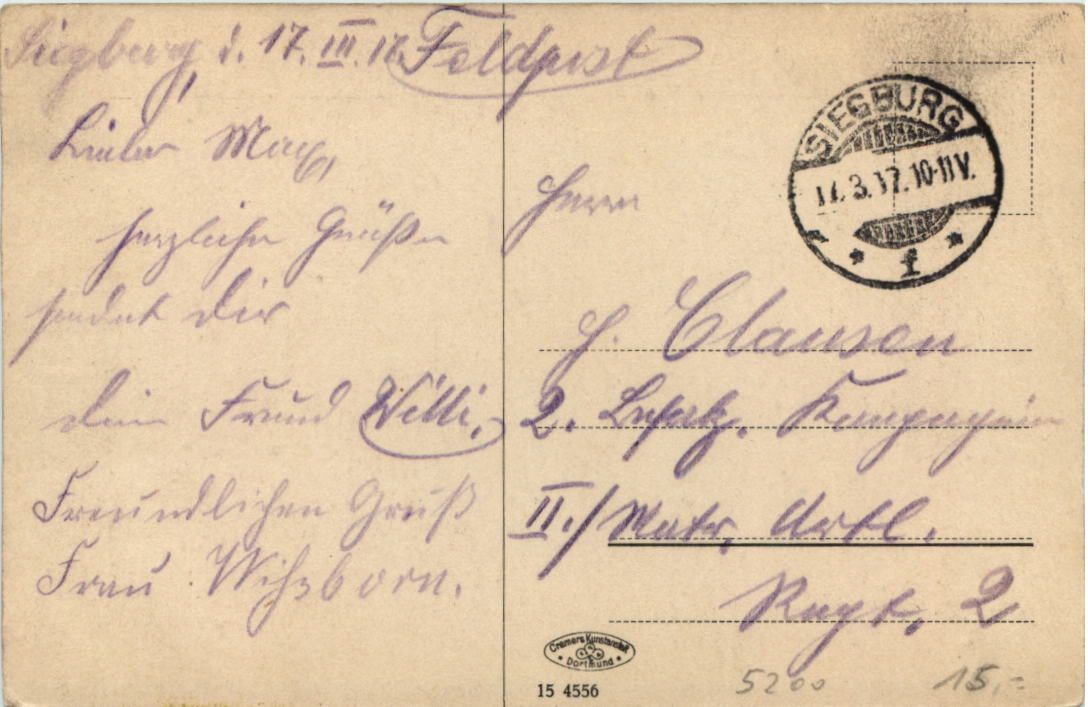 Siegburg, d. 17. III. 17.
Feldpost
Lieber Max,
herzliche Grüße
sendet Dir
Dein Freund Willi.
Freundlichen Gruß
Frau
Herrn
H. Clausen
2. Ersatz. Kompagnie
II./Matr. Artl.
Regt. 2
SIEGBURG
17.3.17.10-11V.
* f *
Cramers Kunstanstalt
Dortmund
15 4556
5200
15,-